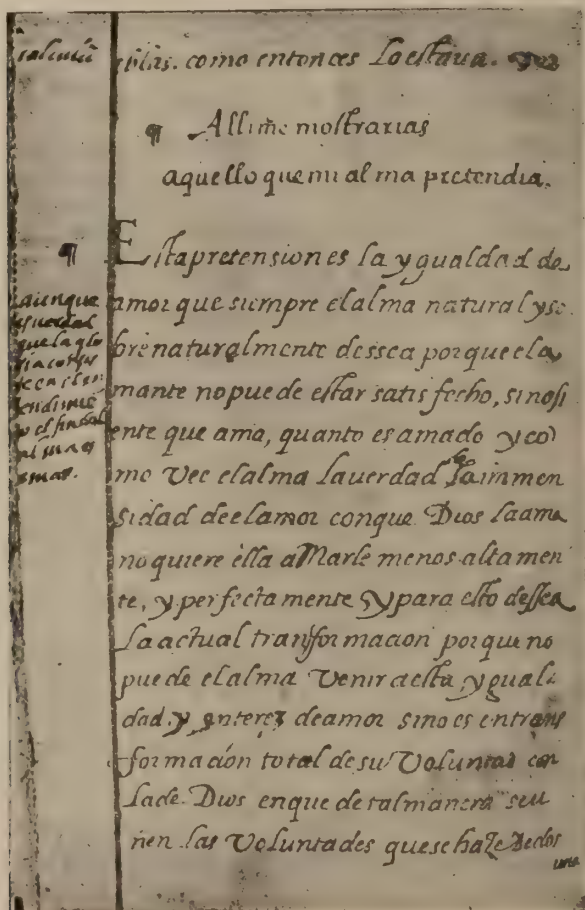 plas. como entonces Lo estava.
¶ Alli me mostrarias
aquello que mi alma pretendia.
¶ Esta pretension es la ygualdad de
amor que siempre el alma natural y so
brenaturalmente dessea porque el a
mante no puede estar satisfecho, si no si
ente que ama, quanto es amado y co
mo Vee el alma la uerdad de la immen
sidad de el amor con que Dios la ama
no quiere ella aMarle menos altamen
te, y perfectamente y para esto dessea
La actual transformacion porque no
puede el alma Venir a esta ygual
dad y enterez de amor sino es en trans
formación total de su Voluntad con
la de Dios en que de tal manera se u
nen las Voluntades que se haze de dos
una
aunque
es uerdad
que la glo
ria consis
te en el en
tendimiẽ
to el fin del
alma es
amar.